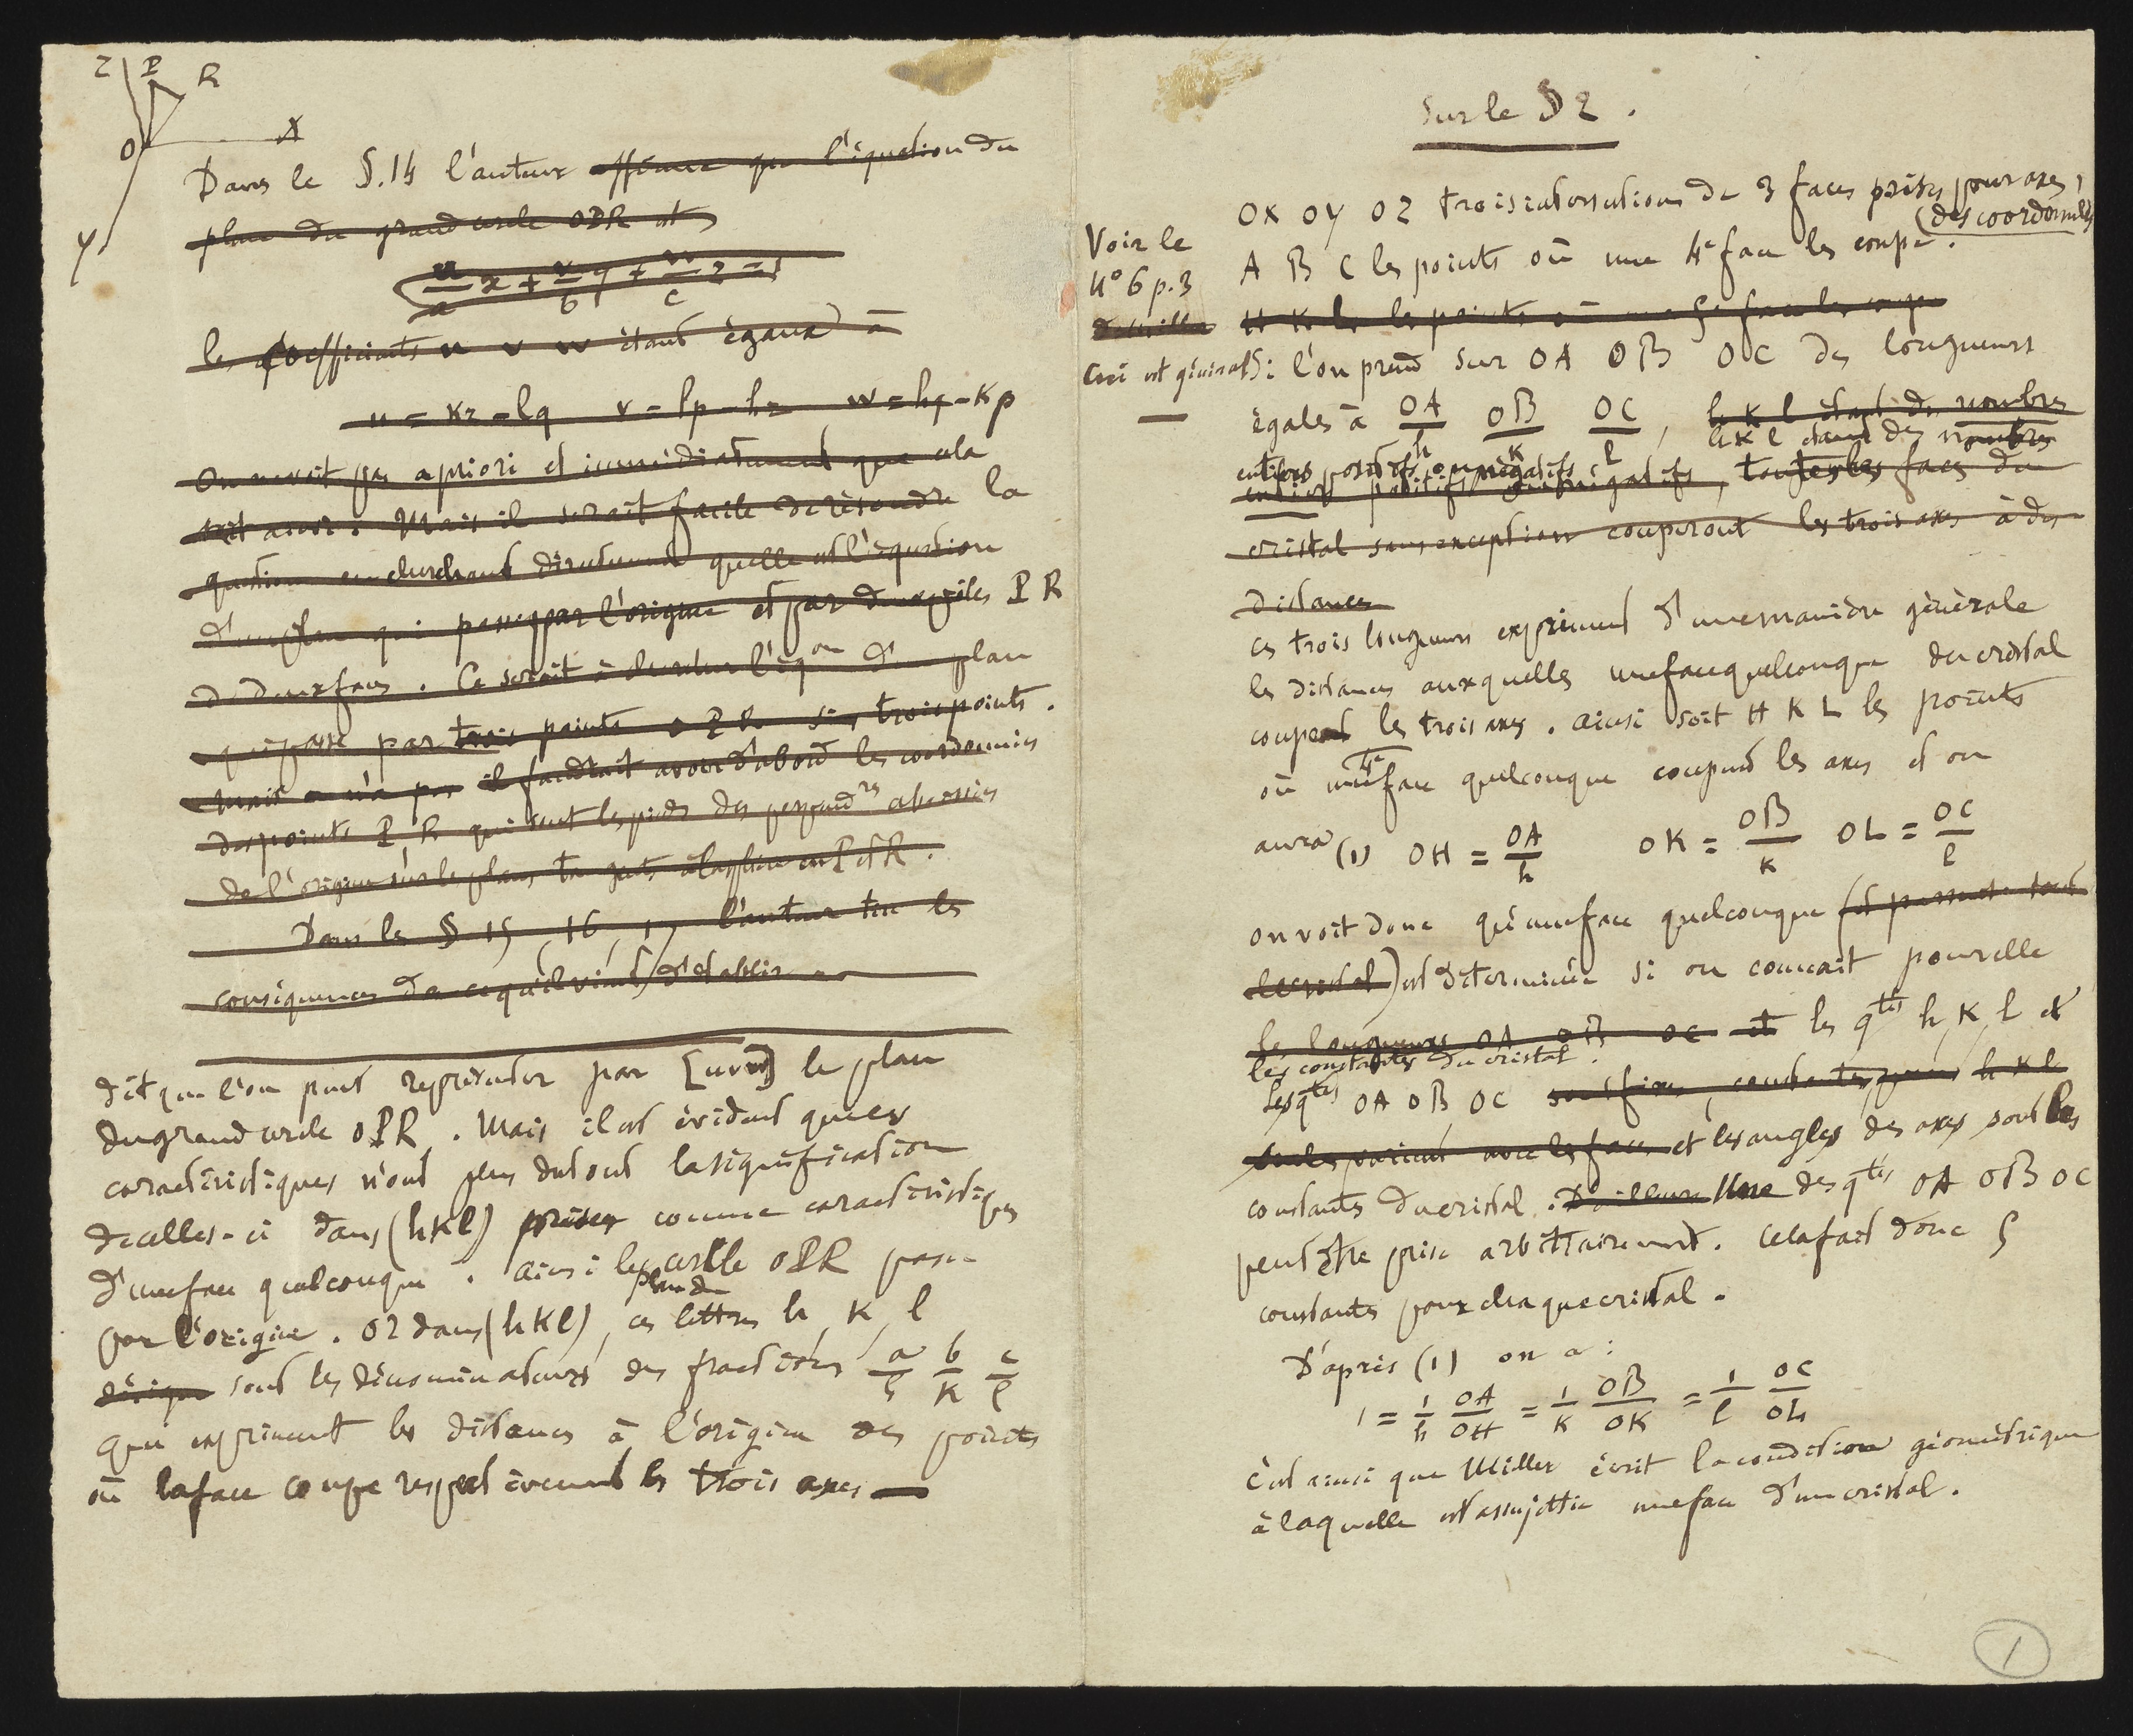 Z P R
O X
Y
Dans le §.14 l'auteur affirme que l'équation du
plan du grand cercle OPR est
u/a x + v/b y + w/c z = 1
les coefficients u v w étant égaux à
u = kr - lq v = lp - hr w = hq - kp
On ne voit pas a priori et immédiatement que cela
soit ainsi. Mais il serait facile de résoudre la
question en cherchant directement quelle est l'équation
d'un plan qui passe par l'origine et par deux pôles P R
de deux faces. Ce serait à chercher l'éq^on d'un plan
qui passe par trois points O P R trois points.
Mais on n'a pas il faudrait avoir d'abord les coordonnées
des points P, R qui sont les pieds des perpend^res abaissées
de l'origine sur les plans
Dans les § 15, 16, 17 l'auteur tire les
conséquences de ce qu'il vient d'établir
dit que l'on peut représenter par [uvw] le plan
du grand cercle OPR. Mais il est évident que ces
caractéristiques n'ont plus du tout la signification
de celles-ci dans (hkl) prises comme caractéristiques
d'une face quelconque. Ainsi le cercle OPR passe
plan du
par l'origine. Or dans (hkl), ces lettres h, k, l
sont les dénominateurs des fractions a/h b/k c/l
qui expriment les distances à l'origine des points
où la face coupe respectivement les trois axes —
Sur le § 2.
OX OY OZ trois intersections de 3 faces prises pour axes,
(des coordonnées
Voir le
A B C les points où une 4^e face les coupe.
N° 6 p. 3
de Miller H K L les points où une 5^e face les coupe
Ceci est général: l'on prend sur OA OB OC des longueurs
égales à OA/h OB/k OC/l, h k l étant des nombres
h k l étant des nombres
entiers positifs ou négatifs
entiers positifs ou négatifs, toutes les faces du
cristal sans exception couperont les trois axes à des
distances
ces trois longueurs expriment d'une manière générale
les distances auxquelles une face quelconque du cristal
coupe les trois axes. Ainsi soit H K L les points
où une face quelconque coupent les axes et on
aura (1) OH = OA/h OK = OB/k OL = OC/l
on voit donc qu'une face quelconque
le cristal) est déterminée si on connait pour elle
les longueurs OA OB OC et les q^tés h, k, l et
les constantes du cristal.
Les q^tés OA OB OC sont fixes, constantes, h k l
seules varient avec les faces et les angles des axes sont les
constantes du cristal. D'ailleurs Une des q^tés OA OB OC
peut être prise arbitrairement. Cela fait donc 5
constantes pour chaque cristal.
D'après (1) on a:
1 = 1/h OA/OH = 1/k OB/OK = 1/l OC/OL
c'est ainsi que Miller écrit la condition géométrique
à laquelle est assujettie une face d'un cristal.
1